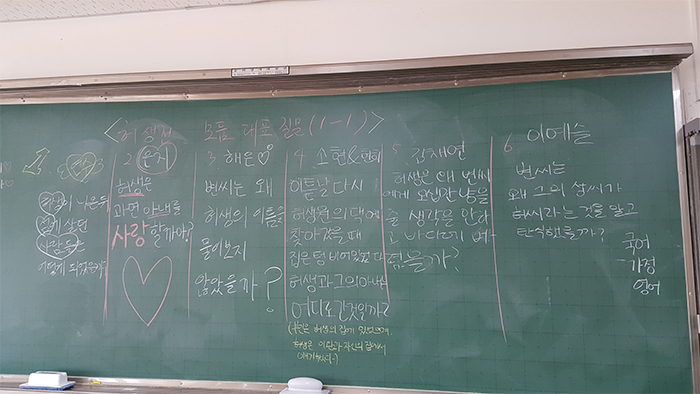 <허생전 모둠 대표 질문 (1-1)>
1.
허생이 나온 후
섬에 살던
사람들은
어떻게 되었을까?
2 은지
허생은
과연 아내를
사랑할까요?
3 해은
변씨는 왜
허생의 이름을
물어보지
않았을까?
4 소현&
이튿날 다시
허생원의 댁에
찾아갔을 때
집은 텅 비어있었다
허생과 그의 아내는
어디로 간 것일까?
5 강재연
허생은 왜 변씨
에게 십만 냥을
줄 생각을 안하
고 바다에
6 이예슬
변씨는
왜 그의 성씨가
허씨라는 것을 알고
탄식했을까?
국어
가정
영어